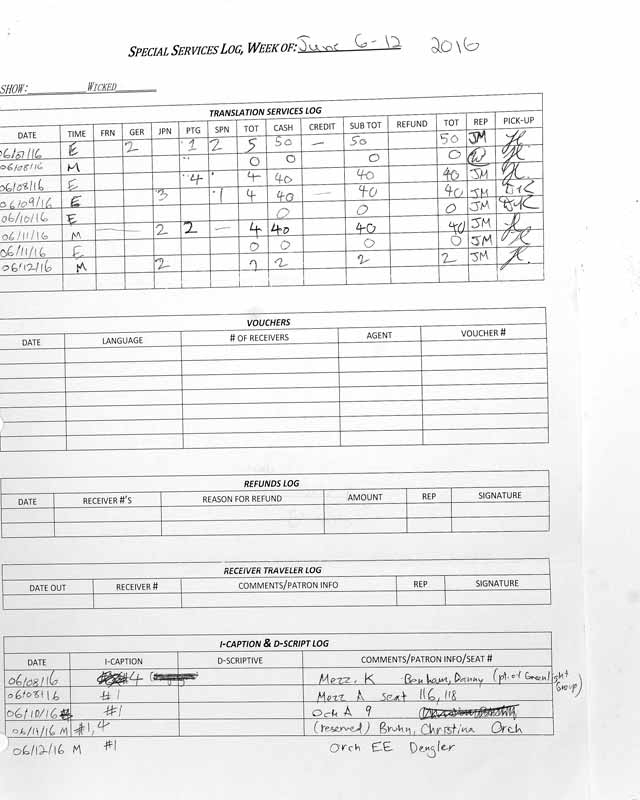 SPECIAL SERVICES LOG, WEEK OF: June 6-12 2016
SHOW: WICKED
TRANSLATION SERVICES LOG
DATE TIME FRN GER JPN PTG SPN TOT CASH CREDIT SUB TOT REFUND TOT REP PICK-UP
06/07/16 E 2 1 2 5 50 — 50 50 JM
06/08/16 M 0 0 0 0
06/08/16 E 4 4 40 40 40 JM
06/09/16 E 3 1 4 40 — 40 40 JM
06/10/16 E 0 0 0 JM
06/11/16 M 2 2 — 4 40 40 40 JM
06/11/16 E 0 0 0 0 JM
06/12/16 M 2 2 2 2 2 JM
VOUCHERS
DATE LANGUAGE # OF RECEIVERS AGENT VOUCHER #
REFUNDS LOG
DATE RECEIVER #'S REASON FOR REFUND AMOUNT REP SIGNATURE
RECEIVER TRAVELER LOG
DATE OUT RECEIVER # COMMENTS/PATRON INFO REP SIGNATURE
I-CAPTION & D-SCRIPT LOG
DATE I-CAPTION D-SCRIPTIVE COMMENTS/PATRON INFO/SEAT #
06/08/16 #4 Mezz. K Benham, Danny (pt. of Greenlight Group)
06/08/16 #1 Mezz A seat 116, 118
06/10/16 #1 Orch A 9
06/11/16 M #1, 4 (reserved) Bruhn, Christina Orch
06/12/16 M #1 Orch EE Dengler